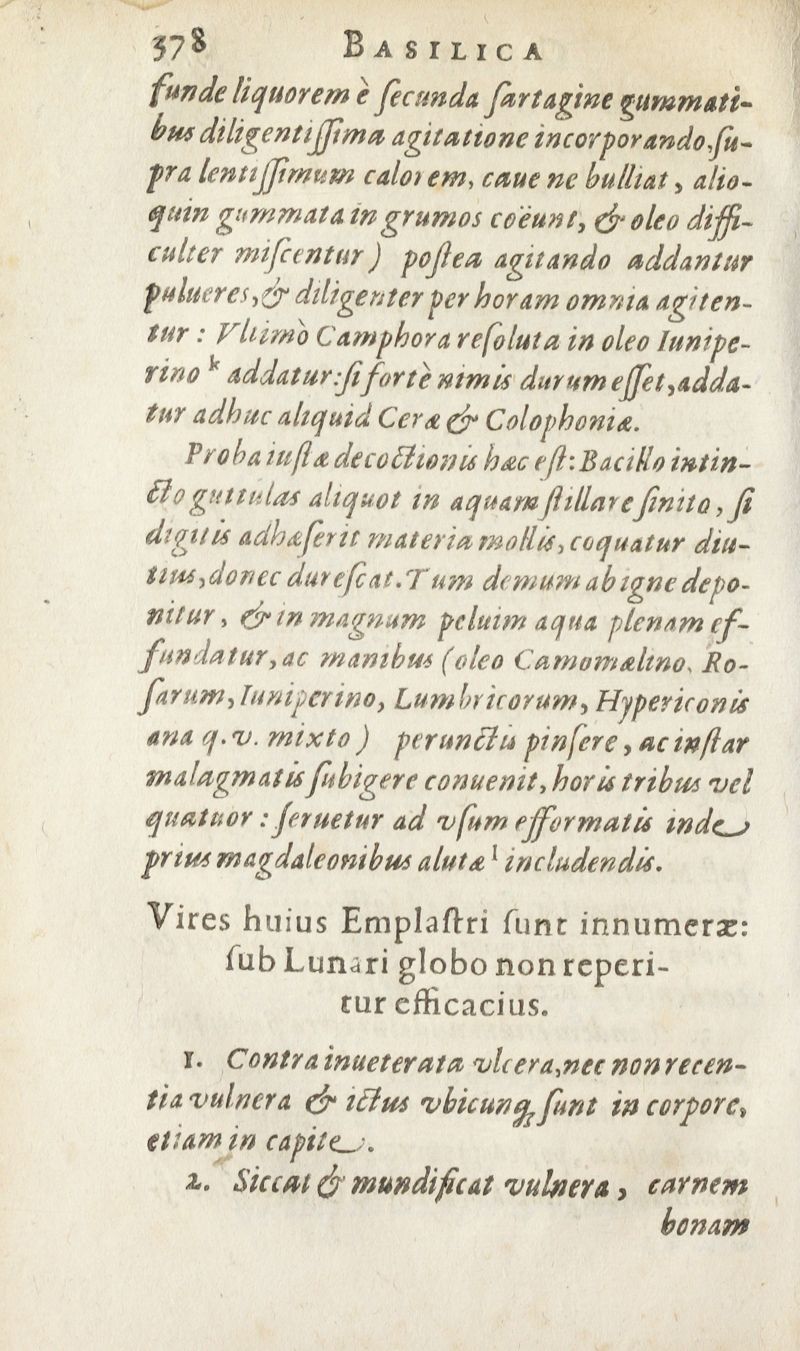 378 BASILICA
funde liquorem è ſecunda ſartagine gummati-
bus diligentiſſima agitatione incorporando,ſu-
pra lentiſſimum calorem, caue ne bulliat, alio-
quin gummata in grumos coëunt, & oleo diffi-
culter miſcentur) poſtea agitando addantur
pulueres,& diligenter per horam omnia agiten-
tur : Vltimò Camphora reſoluta in oleo Iunipe-
rino ᵏ addatur:ſi fortè nimis durum eſſet,adda-
tur adhuc aliquid Ceræ & Colophoniæ.
Proba iuſtæ decoctionis hæc eſt: Bacillo intin-
cto guttulas aliquot in aquam ſtillare ſinito, ſi
digitis adhæſerit materia mollis, coquatur diu-
tius,donec dureſcat. Tum demum ab igne depo-
nitur, & in magnum peluim aqua plenam ef-
fundatur,ac manibus (oleo Camomælino, Ro-
ſarum,Iuniperino, Lumbricorum, Hypericonis
ana q.v. mixto) perunctis pinſere, ac inſtar
malagmatis ſubigere conuenit, horis tribus vel
quatuor : ſeruetur ad vſum efformatis inde
prius magdaleonibus alutæ ˡ includendis.
Vires huius Emplaſtri ſunt innumeræ:
ſub Lunari globo non reperi-
tur efficacius.
1. Contra inueterata vlcera,nec non recen-
tia vulnera & ictus vbicunq; ſunt in corpore,
etiam in capite.
2. Siccat & mundificat vulnera, carnem
bonam